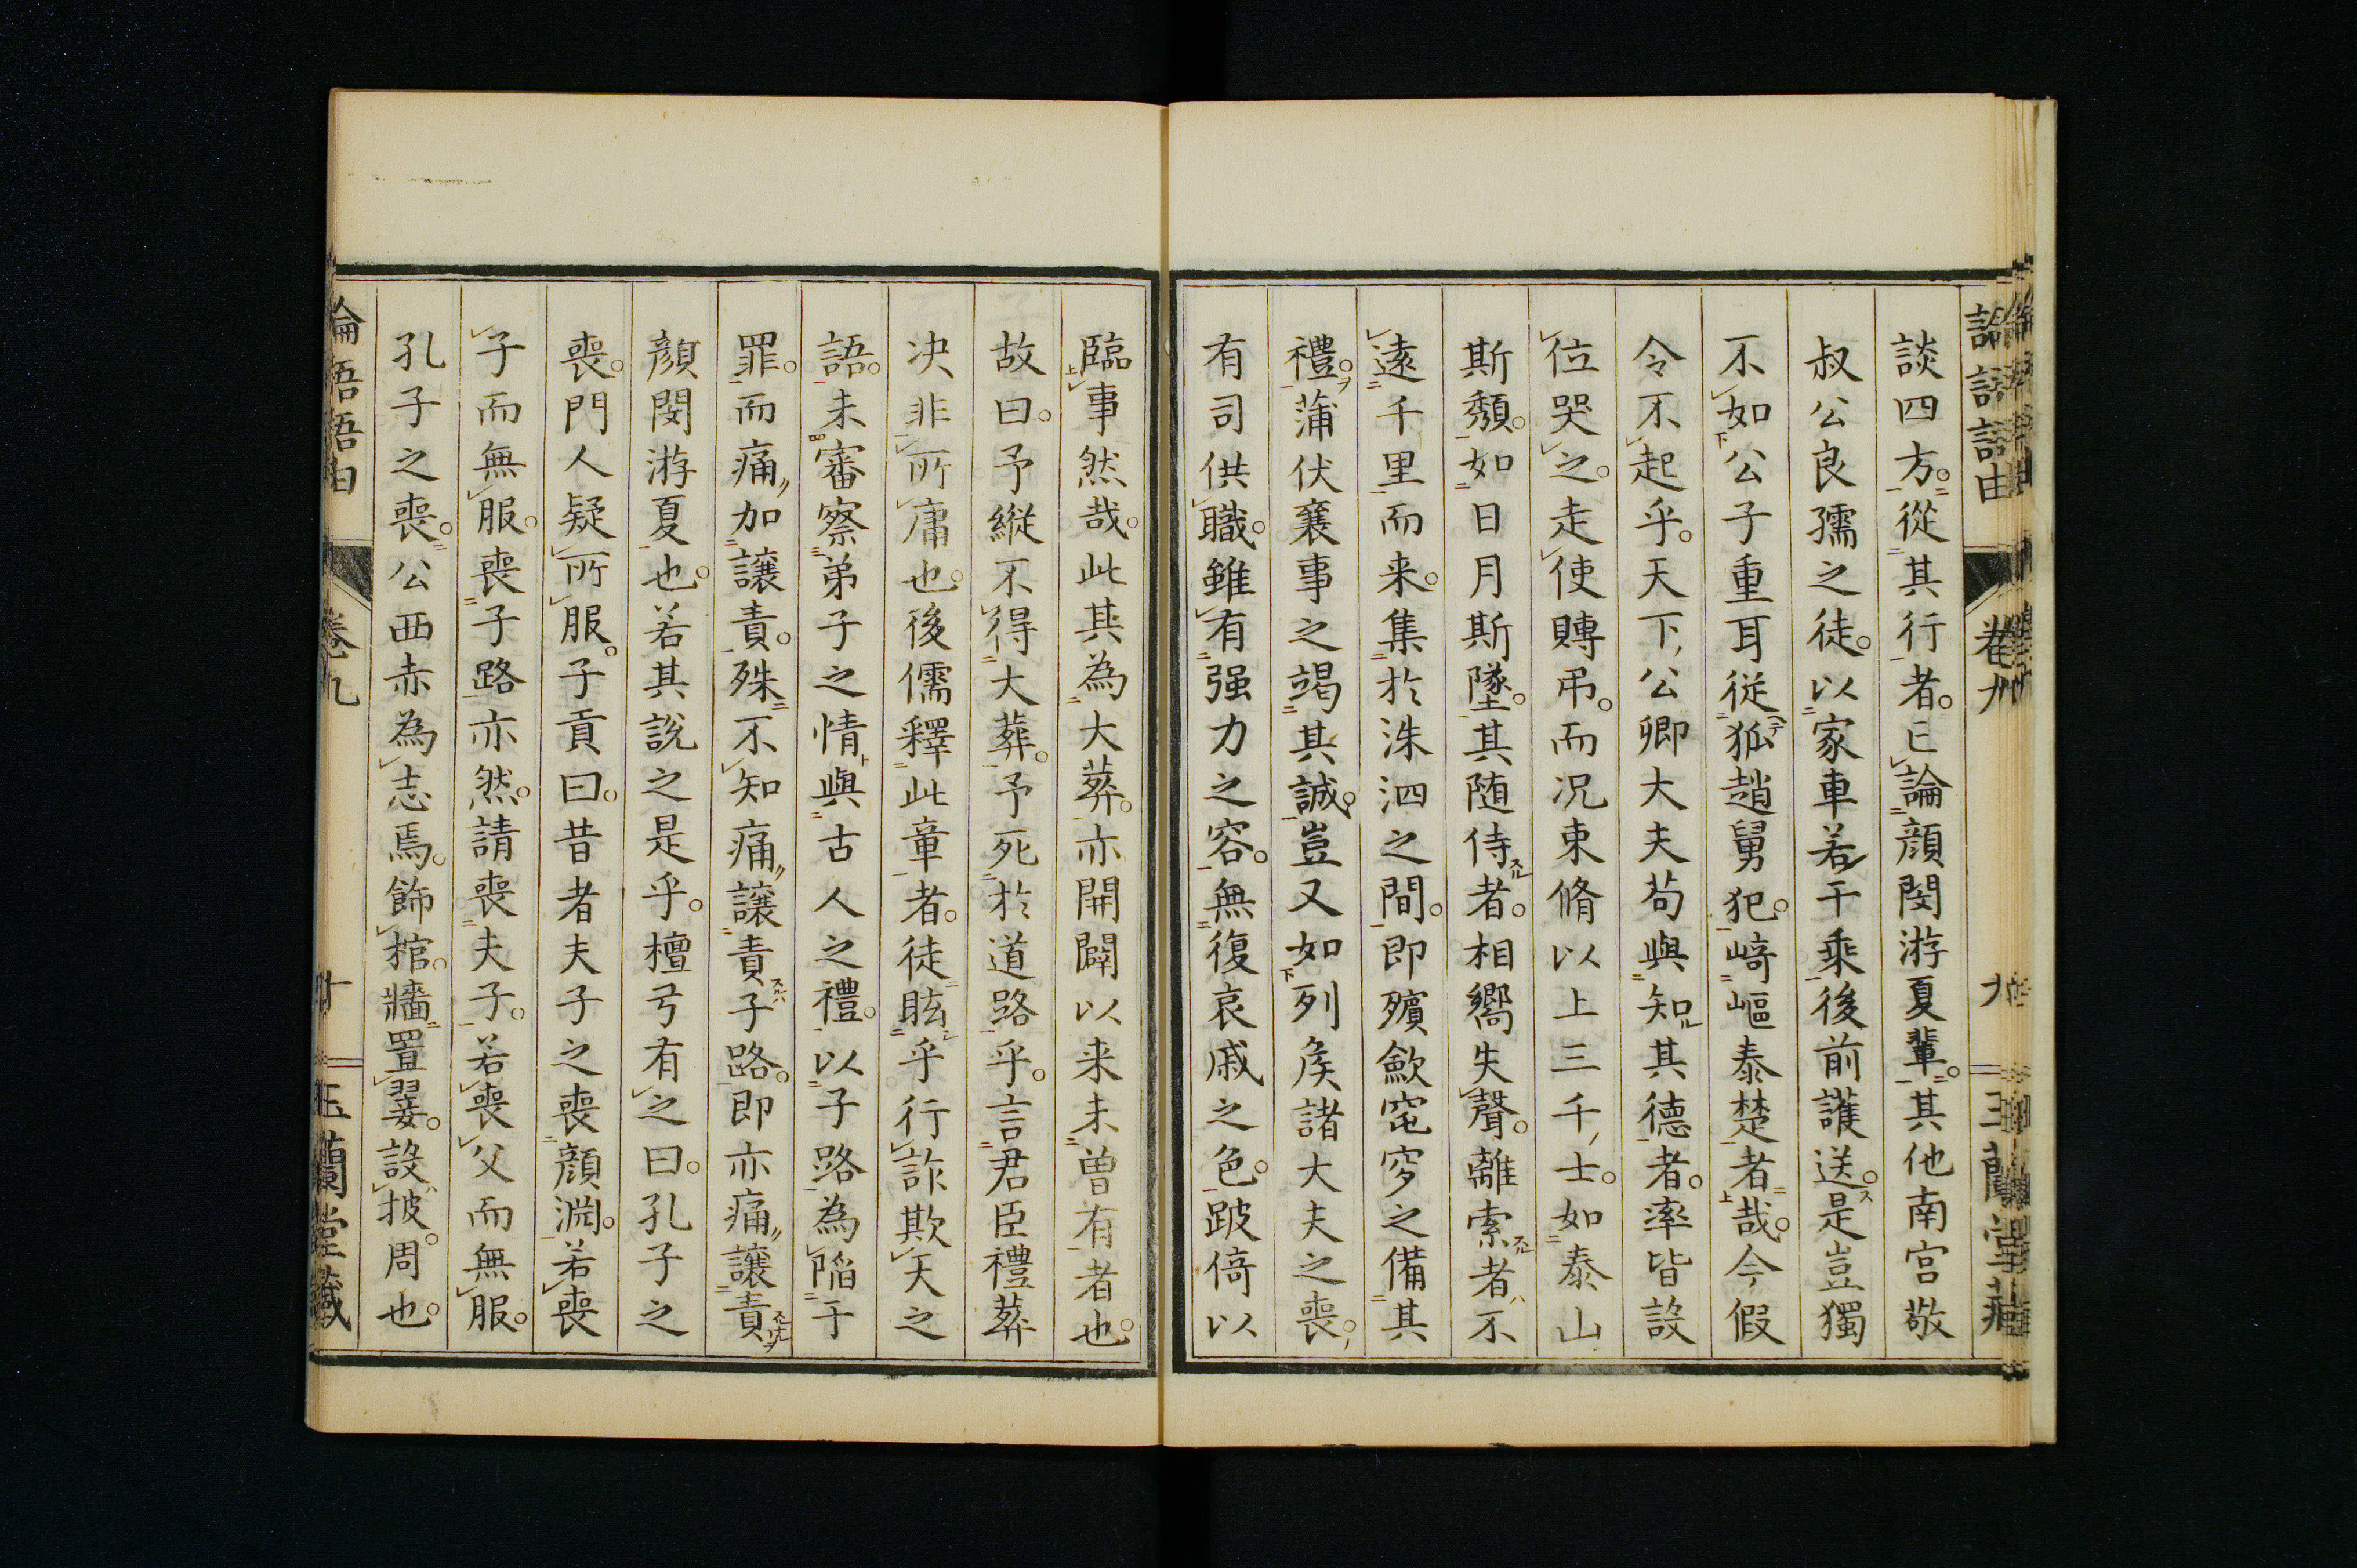 論語語由 卷九 九 玉蘭堂藏
談四方。從其行者。已論顏閔游夏輩。其他南宮敬
叔公良孺之徒。以家車若干乘後前護送。是豈獨
不如公子重耳從狐趙舅犯。崎嶇秦楚者哉。今假
令不起乎。天下公卿大夫苟與知其德者。率皆設
位哭之。走使賻弔。而況束脩以上三千士。如泰山
斯頹。如日月斯墜。其随侍者。相嚮失聲。離索者不
遠千里而来。集於洙泗之間。即殯歛窀穸之備其
禮。蒲伏襄事之竭其誠。豈又如列侯諸大夫之喪。
有司供職。雖有强力之容。無復哀戚之色。跛倚以
臨事然哉。此其為大葬。亦開闢以来未曽有者也。
故曰。予縦不得大葬。予死於道路乎。言君臣禮葬
决非所庸也。後儒釋此章者。徒眩乎行詐欺天之
語。未審察弟子之情與古人之禮。以子路為陷于
罪。而痛加讓責。殊不知痛讓責子路。即亦痛讓責
顏閔游夏也。若其說之是乎。檀弓有之曰。孔子之
喪。門人疑所服。子貢曰。昔者夫子之喪顏淵。若喪
子而無服。喪子路亦然。請喪夫子。若喪父而無服。
孔子之喪。公西赤為志焉。飾棺。牆置翣。設披。周也。
論語語由 卷九 十 玉蘭堂藏